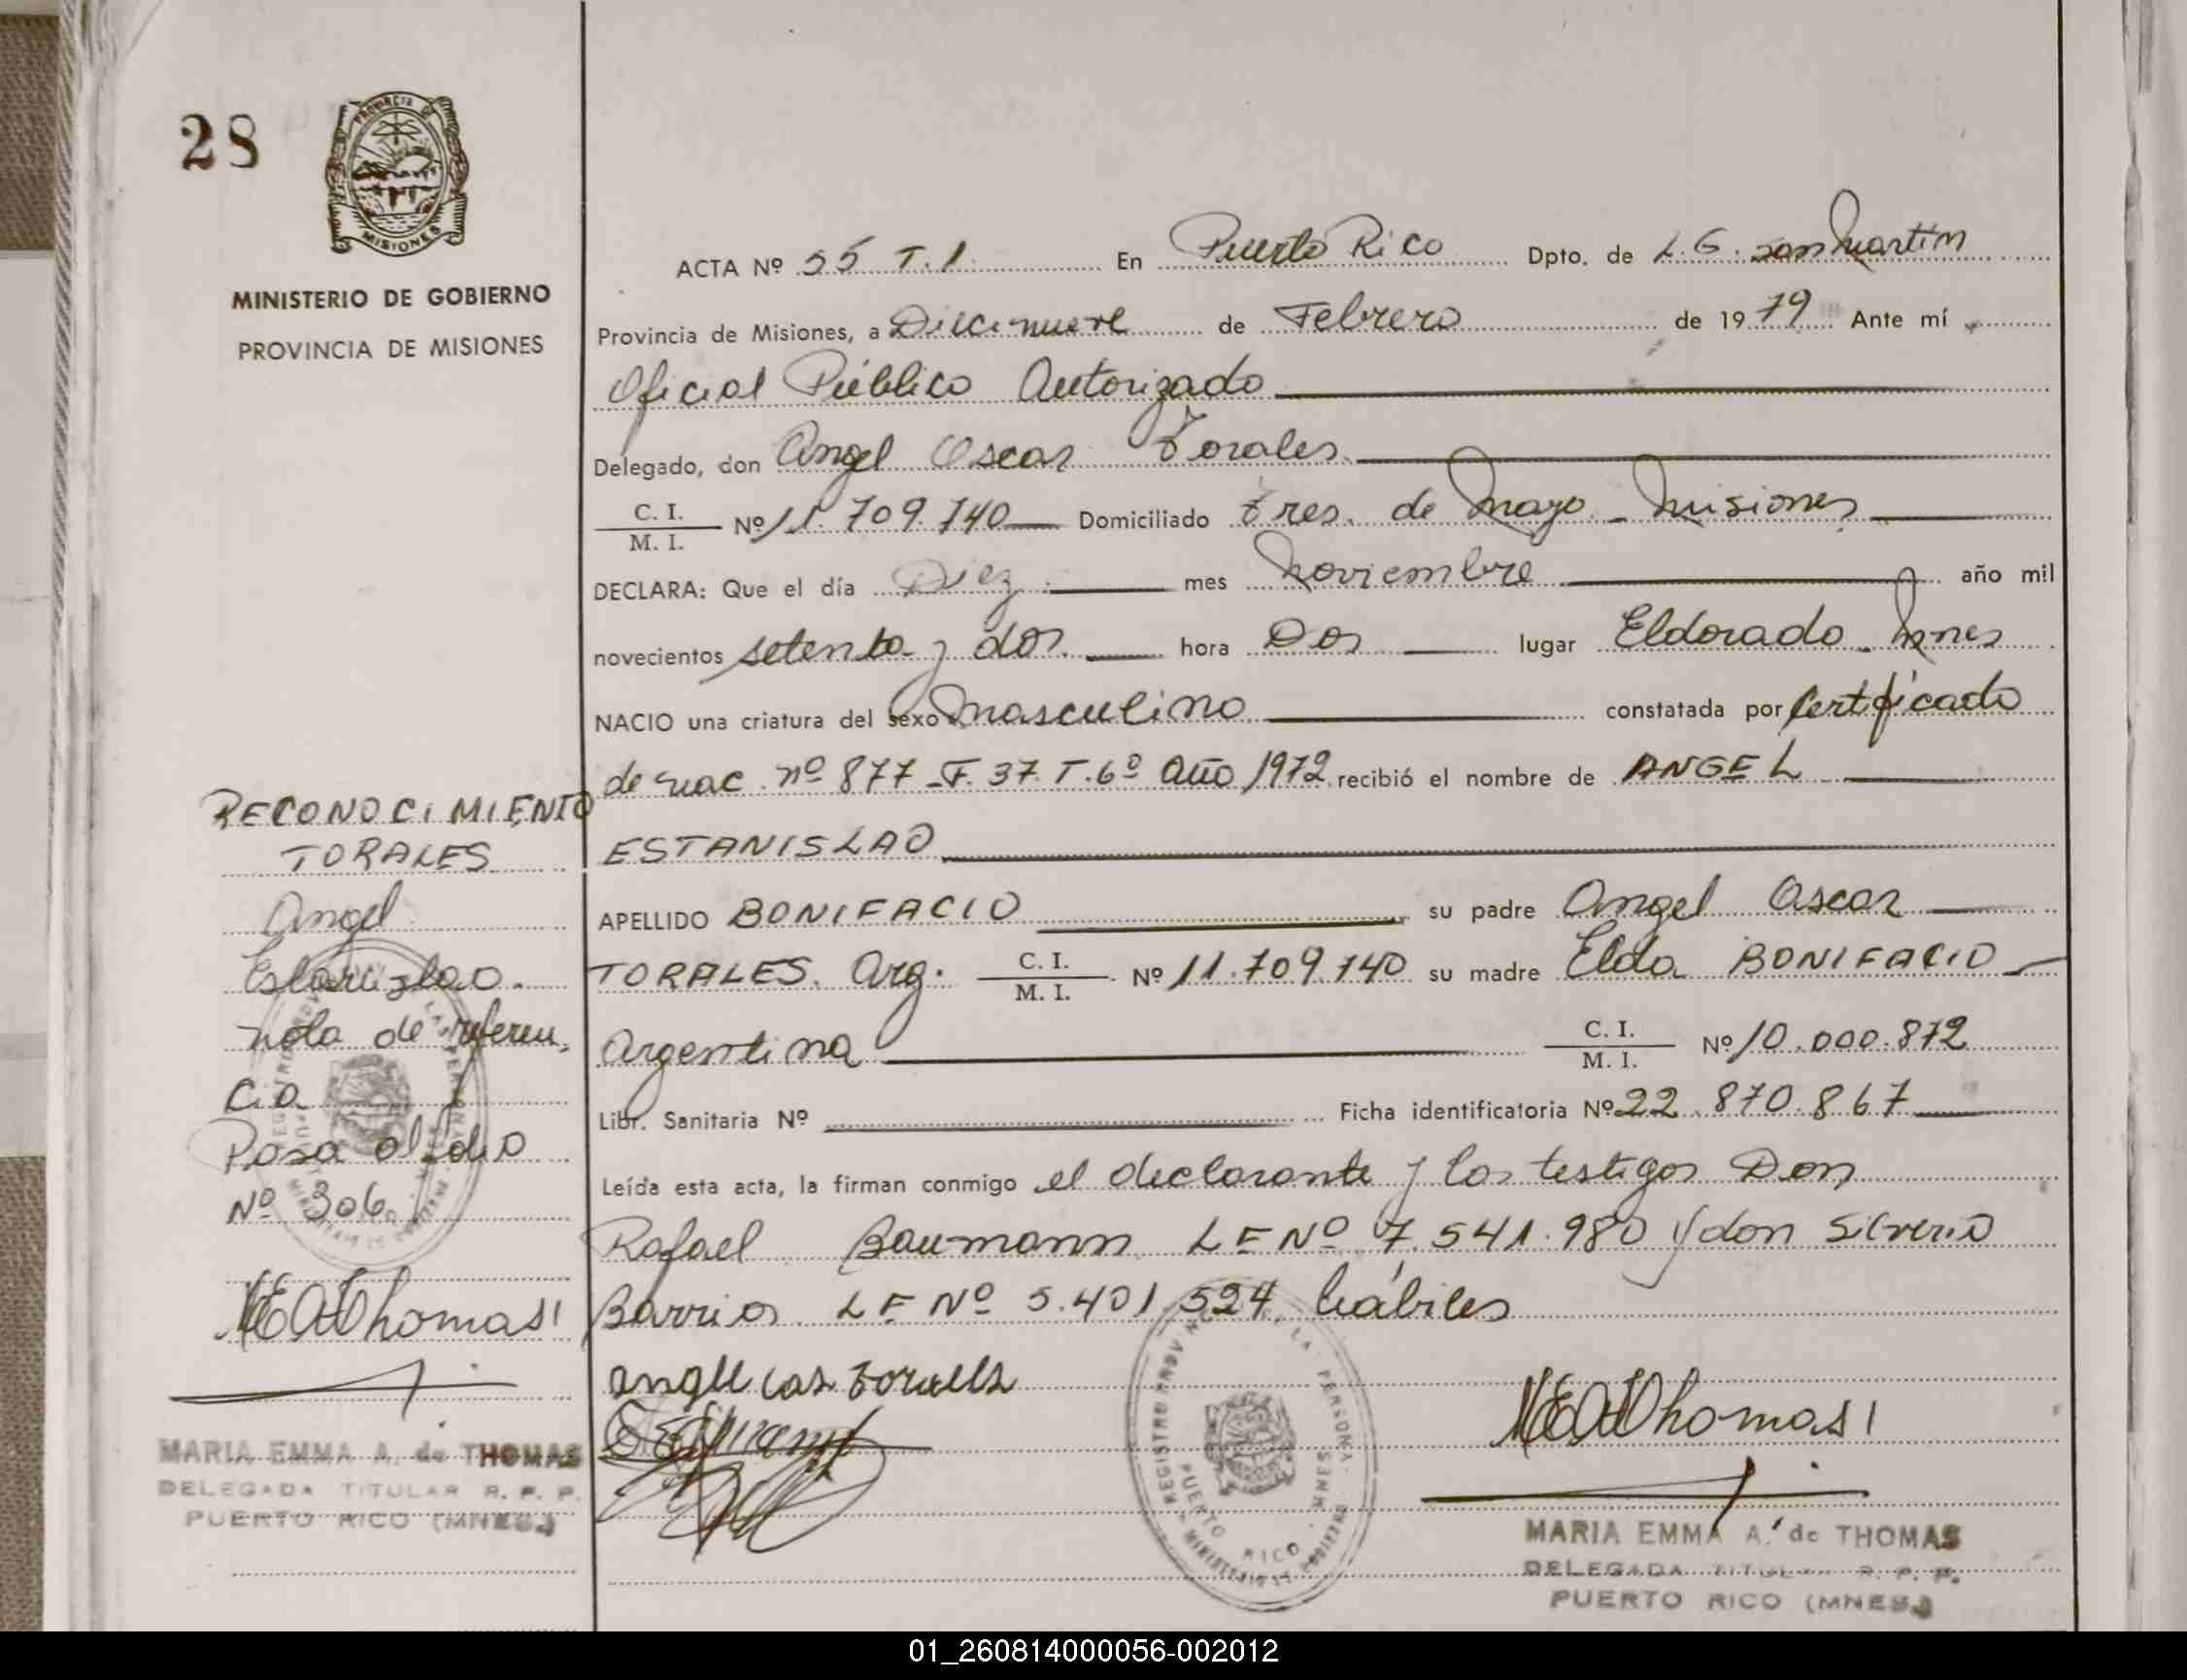 28
PROVINCIA DE
MISIONES
MINISTERIO DE GOBIERNO
PROVINCIA DE MISIONES
ACTA Nº 55 T. 1 En Puerto Rico Dpto. de L. G. San Martin
Provincia de Misiones, a Diecinueve de Febrero de 1979 Ante mí
Oficial Público Autorizado
Delegado, don Angel Oscar Torales
C. I.
M. I. Nº 11.709.140 Domiciliado Tres de Mayo - Misiones
DECLARA: Que el día Diez mes Noviembre año mil
novecientos setenta y dos hora Dos lugar Eldorado - Mnes
NACIO una criatura del sexo Masculino constatada por Certificado
de nac. nº 877 - F. 37 T. 6º Año 1972 recibió el nombre de ANGEL
ESTANISLAO
APELLIDO BONIFACIO su padre Angel Oscar
TORALES. Arg. C. I.
M. I. Nº 11.709.140 su madre Elda BONIFACIO
Argentina C. I.
M. I. Nº 10.000.872
Libr. Sanitaria Nº Ficha identificatoria Nº 22.870.867
Leída esta acta, la firman conmigo el declarante y los testigos Don
Rafael Baumann LE Nº 7.541.980 y don Silverio
Barrios LE Nº 5.401.524, hábiles
RECONOCIMIENTO
TORALES
Angel
Estanislao.
nota de referen,
cia
Pasa al folio
Nº 306
MEAThomas
MARIA EMMA A. de THOMAS
DELEGADA TITULAR R. P. P.
PUERTO RICO (MNES.)
REGISTRO PROV
PUERTO RICO MNES
MEAThomas
MARIA EMMA A. de THOMAS
DELEGADA TITULAR R. P. P.
PUERTO RICO (MNES.)
01_260814000056-002012